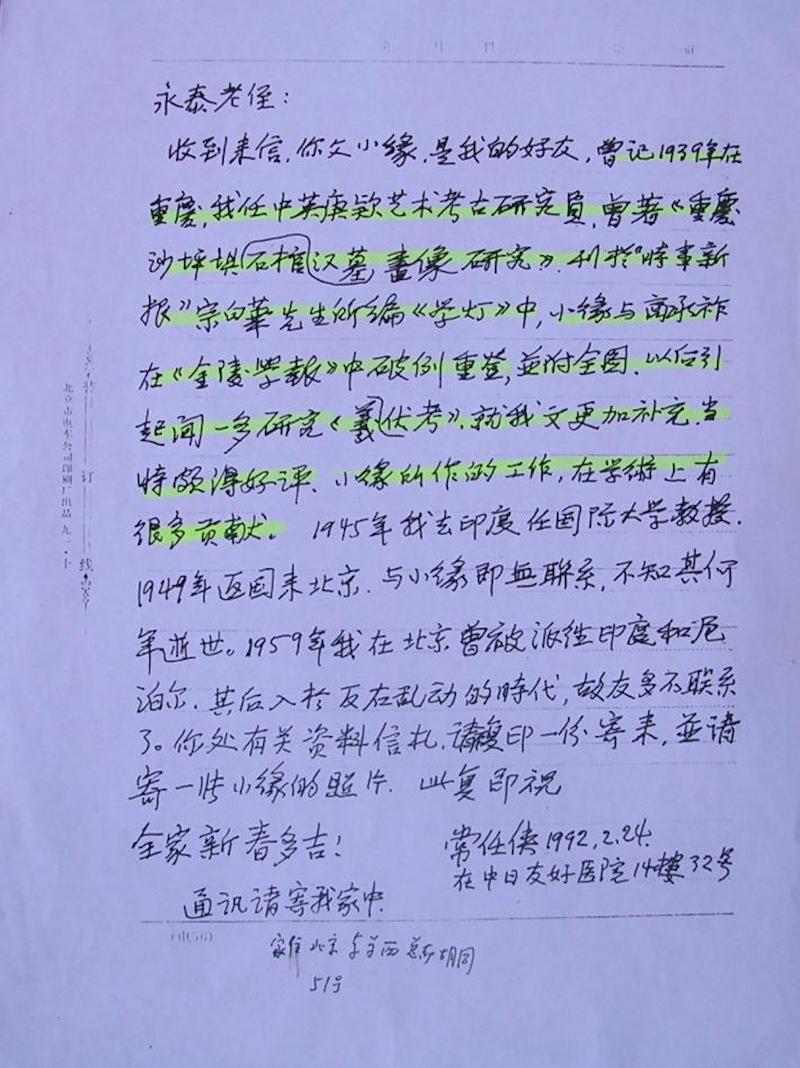 永泰老侄：
收到来信，你父小缘，是我的好友，曾记1939年在
重庆，我任中英庚款艺术考古研究員，曾著《重慶
沙坪垻石棺汉墓畫像研究》，刊於“時事新
报”宗白華先生所编《学灯》中，小缘与商承祚
在《金陵學報》中破例重登，並附全图，以后引
起闻一多研究《羲伏考》，就我文更加补充，当
時颇得好评、小缘所作的工作，在学術上有
很多贡献。 1945年我去印度任国际大学教授，
1949年返国来北京，与小缘即無联系，不知其何
年逝世。1959年我在北京曾被派往印度和尼
泊尔，其后入於反右乱动的時代，故友多不联系
了。你处有关资料信札，请複印一份寄来，並请
寄一张小缘的照片，此复即祝
全家新春多吉！
常任侠1992.2.24.
在中日友好医院14樓32号
通讯请寄我家中
家住北京 西总布胡同
51号
订
线
北京市电车公司印刷厂出品 九一·十